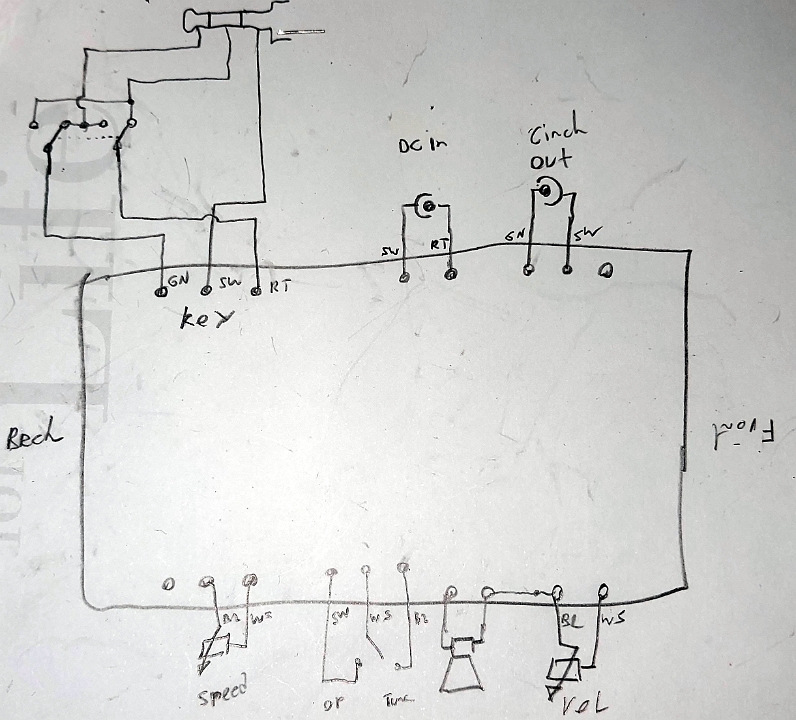 DC in
Cinch
out
SW RT GN SW
GN SW RT
key
Bech
Front
BL WS SW WS BL BL WS
Speed OP Tune VOL